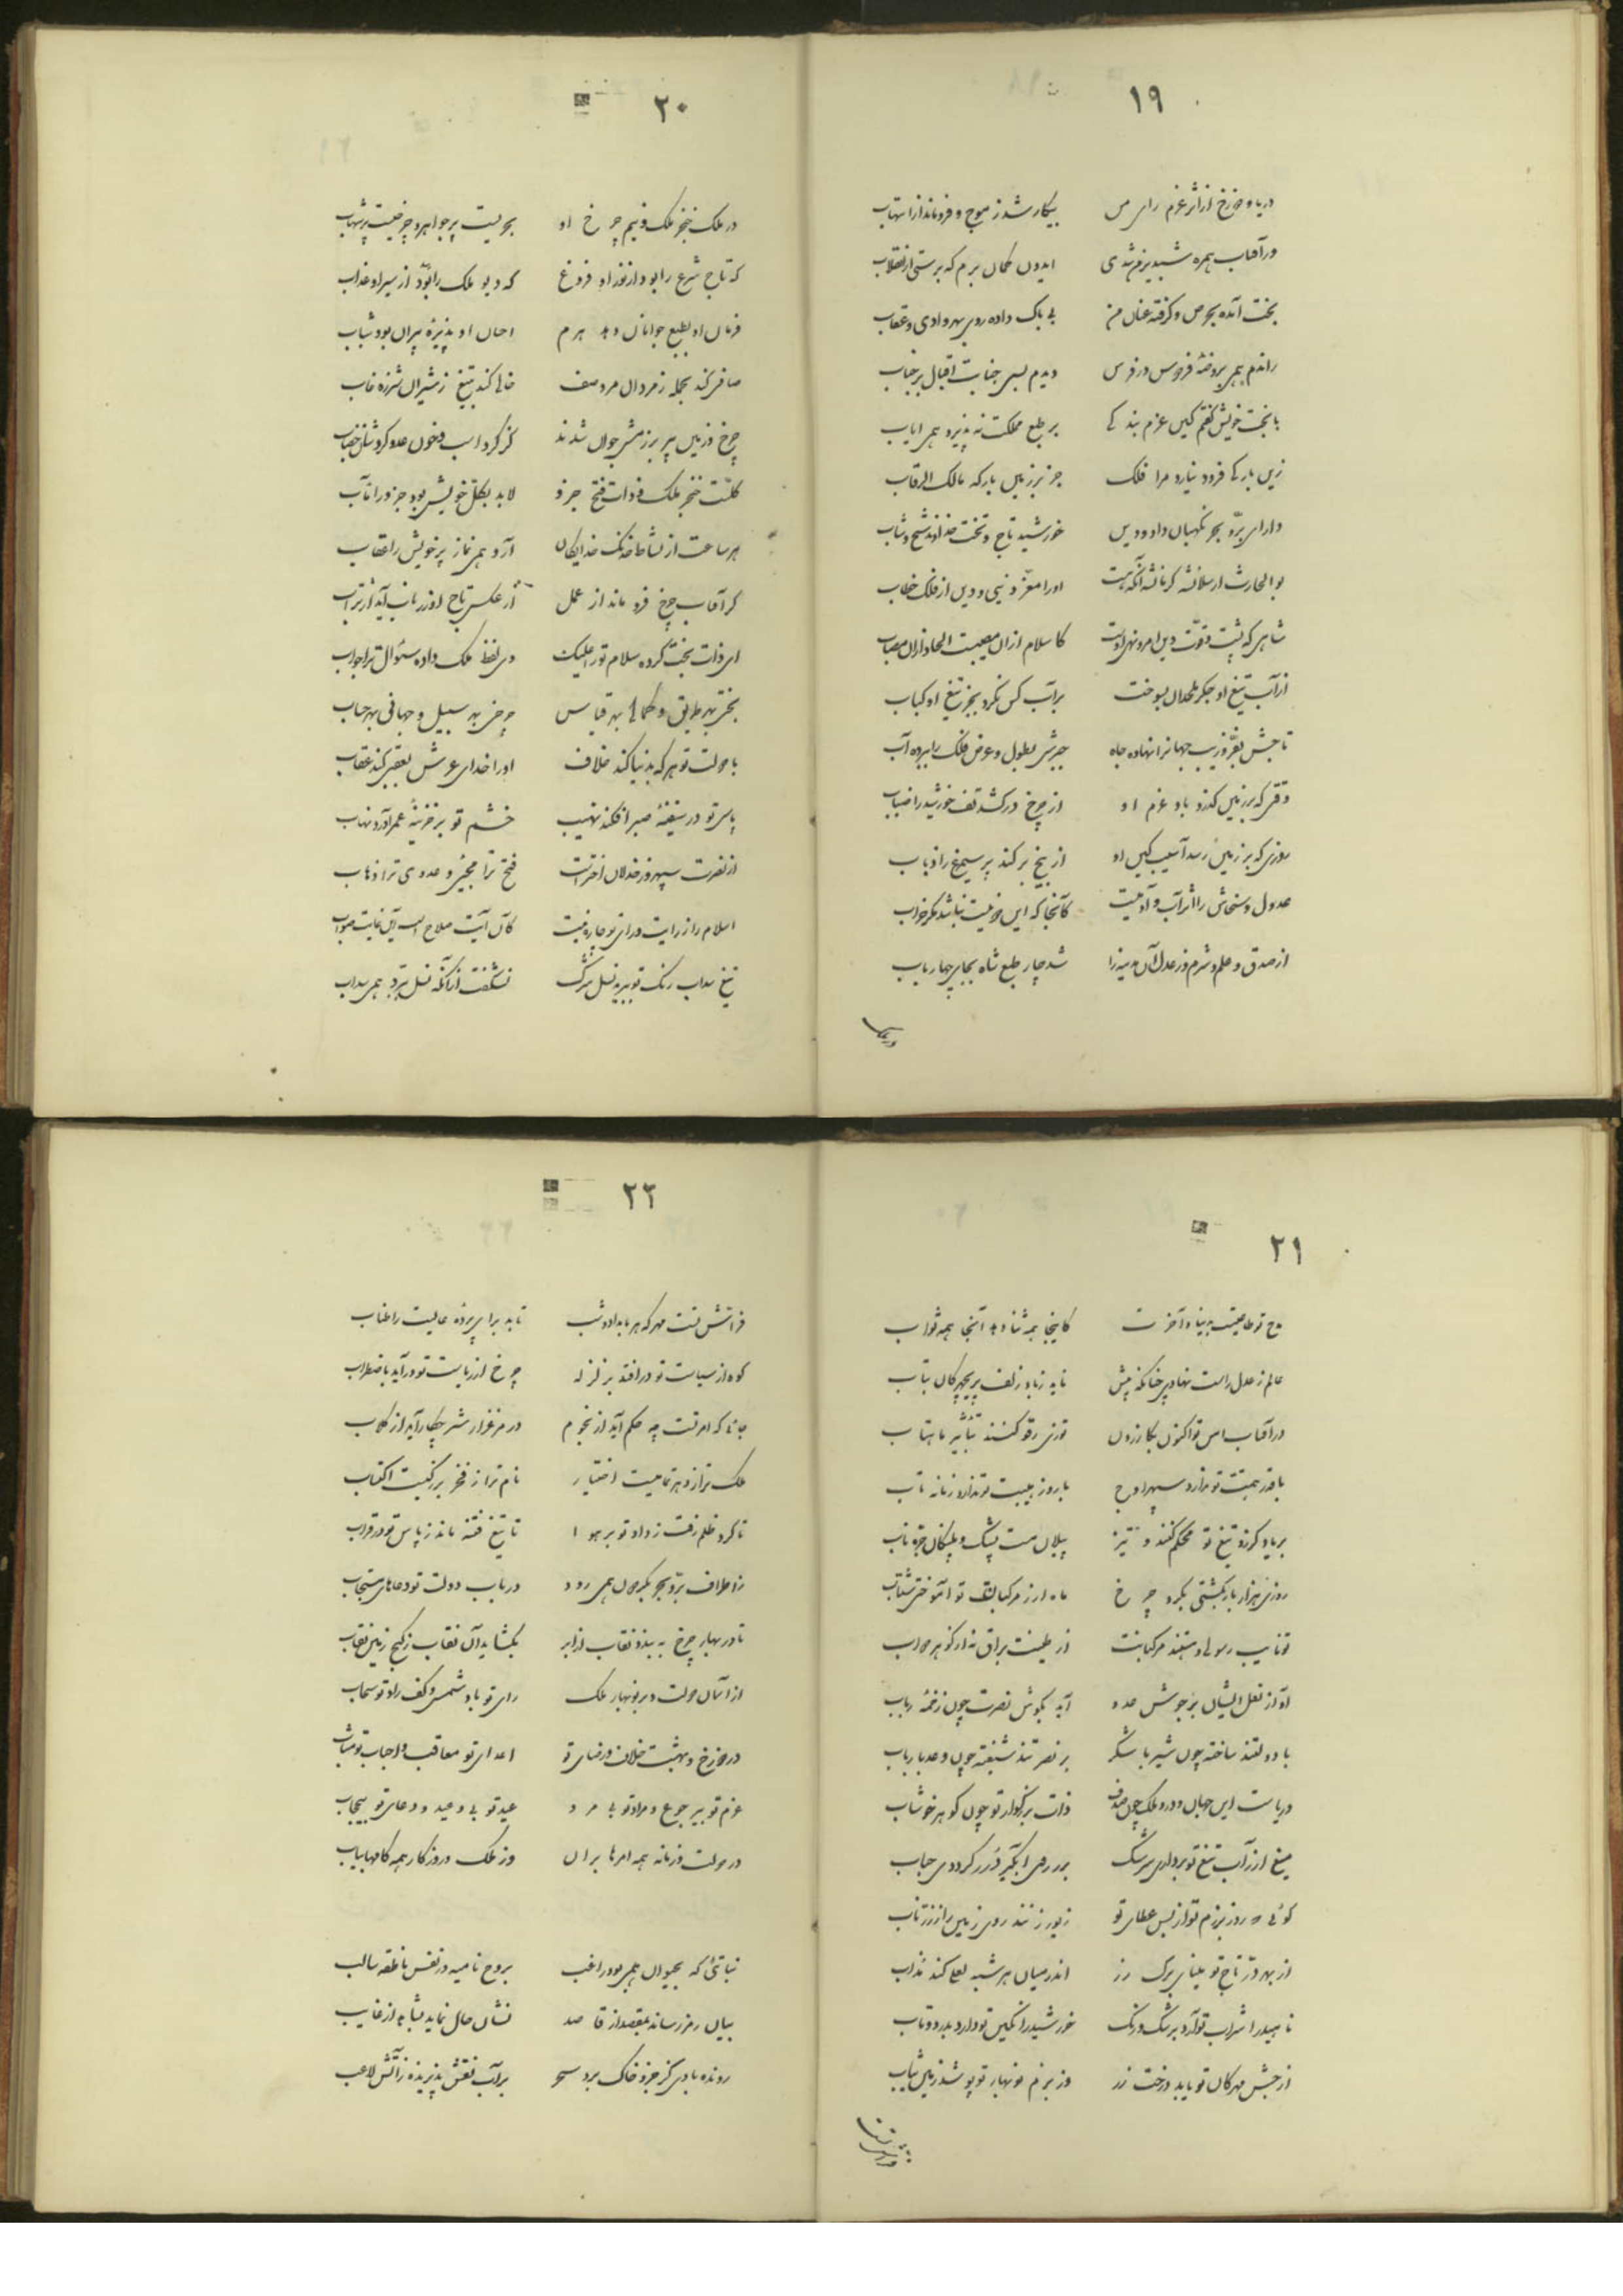 ۱۹
دریا و دوزخ از اثر عزم رای من بیکار شد ز موج و فرو ماند از التهاب
ور آفتاب همره شبدیز من شدی ایدون گمان برم که برستی ز انقلاب
بخت آمده بحرص و گرفته عنان من بی باک داده روی بهر وادی و عقاب
راندم همی بروضه فردوس در فرس دیدم بسی جنایب اقبال بر جناب
با بخت خویش گفتم کین عزم بندگی بر طبع مملکت نه پذیرد همی ایاب
زین بارگی فرود نیارد مرا فلک جز بر زمین بارگه مالک الرقاب
دارای برّ و بحر نگهبان داد و دین خورشید تاج و تخت خداوند شیخ و شاب
بو الحارث ارسلانشه کرمانشه آنکه هست او را معزّ دنیی و دین از فلک خطاب
شاهی که پشت و قوّت دین امر و نهی اوست کاسلام ازان مصیبت الحاد ازان مصاب
از آب تیغ او جگر ملحدان بسوخت بر آب کس نکرد بجز تیغ او کباب
تاجش بفرّ و زیب جهانرا نهاده جاه جیشش بطول و عرض فلک را ببرده آب
وقتی که بر زمین گذرد باد عزم او از چرخ در کشد تف خورشید را ضباب
روزی که بر زمین رسد آسیب کین او از بیخ بر کند پر سیمرغ را ذباب
عدل و سخاش را اثر آب و آدمیت کانجا که این دو نیست نباشد مگر خراب
از صدق و علم و شرم و ز عدل آن مدینه را شد چار طبع شاه بجای چهار یاب
۲۰
در ملک خنجر ملک و نیم چرخ او بحریست پر جواهر و چرخیست پر شهاب
که تاج شرع را بود از نور او فروغ که دیو ملک را بود از سیر او عذاب
فرمان او بطبع جوانان دهد هرم احسان او پذیره پیران بود شباب
صافی کند بحمله ز مردان مرد صف خالی کند بتیغ ز شیران شرزه غاب
چرخ و زمین پیر برزمش جوان شدند کز گرد اسب و خون عدو کردشان خضاب
کلّست خنجر ملک و ذات فتح جزو لابد بکلّ خویش بود جزو را مآب
هر ساعت از نشاط خدنگ خدایگان آرد همی نماز پر خویش را عقاب
گر آفتاب چرخ فرو ماند از عمل از عکس تاج او زر ناب آید از تراب
ای ذات بخت کرده سلام تو را علیک وی لفظ ملک داده سئوال ترا جواب
بختی بهر طریق و کمالی بهر قیاس چرخی بهر سبیل و جهانی بهر حساب
با دولت تو هر که بدنیا کند خلاف او را خدای عرش بعقبی کند عقاب
پاس تو در سفینه صبر افکند نهیب خشم تو بر خزینه عمر آورد نهاب
از نصرت سپهر و ز خذلان اخترانست فتح ترا مجیئ و عدوی ترا ذهاب
اسلام را ز رایت و رای تو چاره نیست کان آیت صلاح است این غایت صواب
تیغ سداب رنگ تو ببرید نسل شرک نشگفت از آنکه نسل ببرّد همی سداب
۲۱
مدح تو طاعتیست بدنیا و آخرت کاینجا همه ثنا دهد آنجا همه ثواب
عالم ز عدل راست نهادی چنانکه پیش ناید ز باد زلف پریچهرگان بتاب
در آفتاب امن تو اکنون بکازرون توزی رفو کنند بتأثیر ماهتاب
با قدر همّت تو ندارد سپهر اوج با روز هیبت تو ندارد زمانه تاب
بر یاد گرز و تیغ تو محکم کنند و تیز پیلان مست یشک و پلنگان جزه ناب
روزی هزار بار بکشتی بگرد چرخ ماه ار ز مرکبان تو آموختی شتاب
تو نایب رسولی و هستند مرکبانت از طینت براق نه از گوهر دواب
آواز نعل ایشان بر جوشن عدو آید بگوش نصرت چون زخمه رباب
با دولتند ساخته چون شیر با شکر بر نصرتند شیفته چون وعد با رباب
دریاست این جهان و درو ملک چون صدف ذات بزرگوار تو چون گوهر خوشاب
میغ ار ز آب تیغ تو بردارد سرشک بر روی آبگیر ز زر گرددی حباب
گوئی که روز بزم تو از بس عطای تو زیور زنند روی زمین را ز زرّ ناب
از بهر درّ تاج تو نیسان برگ رز اندر میان هر شبه لعلی کند مذاب
ناهید را شراب تو آرد برشک و رنگ خورشید را نگین تو دارد بدرد و تاب
از جشن مهرگان تو یابد درخت زر وز بزم نوبهار تو پوشد زمین ثیاب
۲۲
فرّاش تست مهر که هر بامداد و شب تابد برای پرده عالیت را طناب
کوه از سیاست تو در افتد بزلزله چرخ از ریاست تو در آید باضطراب
جائی که امر تست چه حکم آید از نجوم در مرغزار شیر چکار آید از کلاب
ملک ترا ز دهر تمامیست اختیار نام ترا ز فخر بزرگیست اکتساب
تا گرد ظلم رفت ز داد تو بر هوا تا تیغ فتنه ماند ز پاس تو در قراب
ز اطراف برّ و بحر بگردون همی رود در باب دولت تو دعاهای مستجاب
تا در بهار چرخ به بندد نقاب ابر بگشاید آن نقاب ز گنج زمین نقاب
از آسمان دولت و بر نوبهار ملک رای تو باد شمس و کف راد تو سحاب
در دوزخ و بهشت خلاف و رضای تو اعدای تو معاقب و احباب تو مثاب
عزم تو بی رجوع و مراد تو بی مرد عید تو بی وعید و دعای تو بی حجاب
در دولت و زمانه همه امرها بران وز ملک و روزگار همه کامها بیاب
نباتئی که بحیوان همی بود راغب بروح نامیه وز نفس ناطقه سالب
بیان رمز رساند بمقصد از قاصد نشان حال نماید بشاهد از غایب
رونده بادی کز جزو خاک برد سحر بر آب نقش پذیرنده ز آتش لاعب